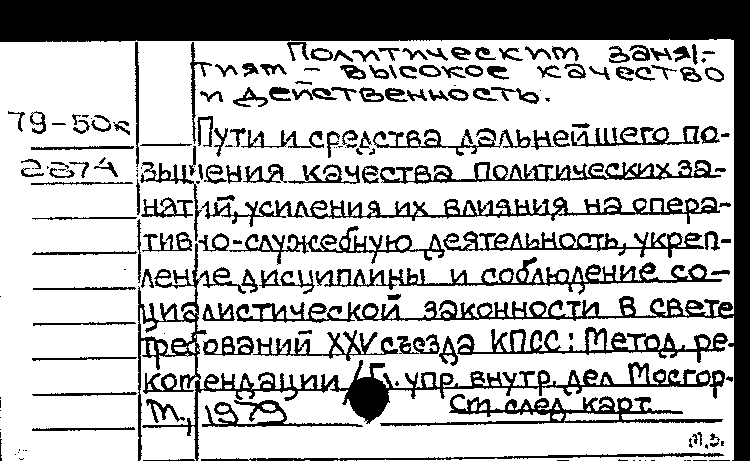 Политическим заня-
тиям – высокое качество
и действенность.
79-50к
2874
Пути и средства дальнейшего по-
вышения качества политических за-
нятий, усиления их влияния на опера-
тивно-служебную деятельность, укреп-
ление дисциплины и соблюдение со-
циалистической законности в свете
требований XXV съезда КПСС: Метод. ре-
комендации / Гл. упр. внутр. дел Мосгор-
М., 1979
См. след. карт.
М.З.